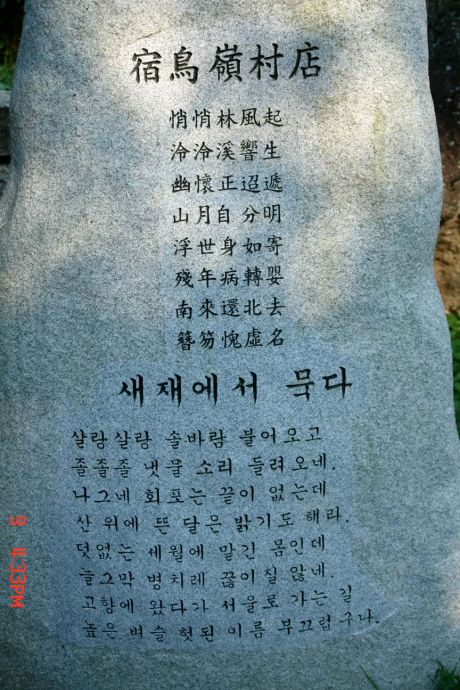 宿鳥嶺村店
悄悄林風起
泠泠溪響生
幽懷正迢遞
山月自分明
浮世身如寄
殘年病轉嬰
南來還北去
簪笏愧虛名
새재에서 묵다
살랑살랑 솔바람 불어오고
졸졸졸 냇물 소리 들려오네.
나그네 회포는 끝이 없는데
산 위에 뜬 달은 밝기도 해라.
덧없는 세월에 맡긴 몸인데
늘그막 병치레 끊이질 않네.
고향에 왔다가 서울로 가는 길
높은 벼슬 헛된 이름 부끄럽구나.
9 4:33PM